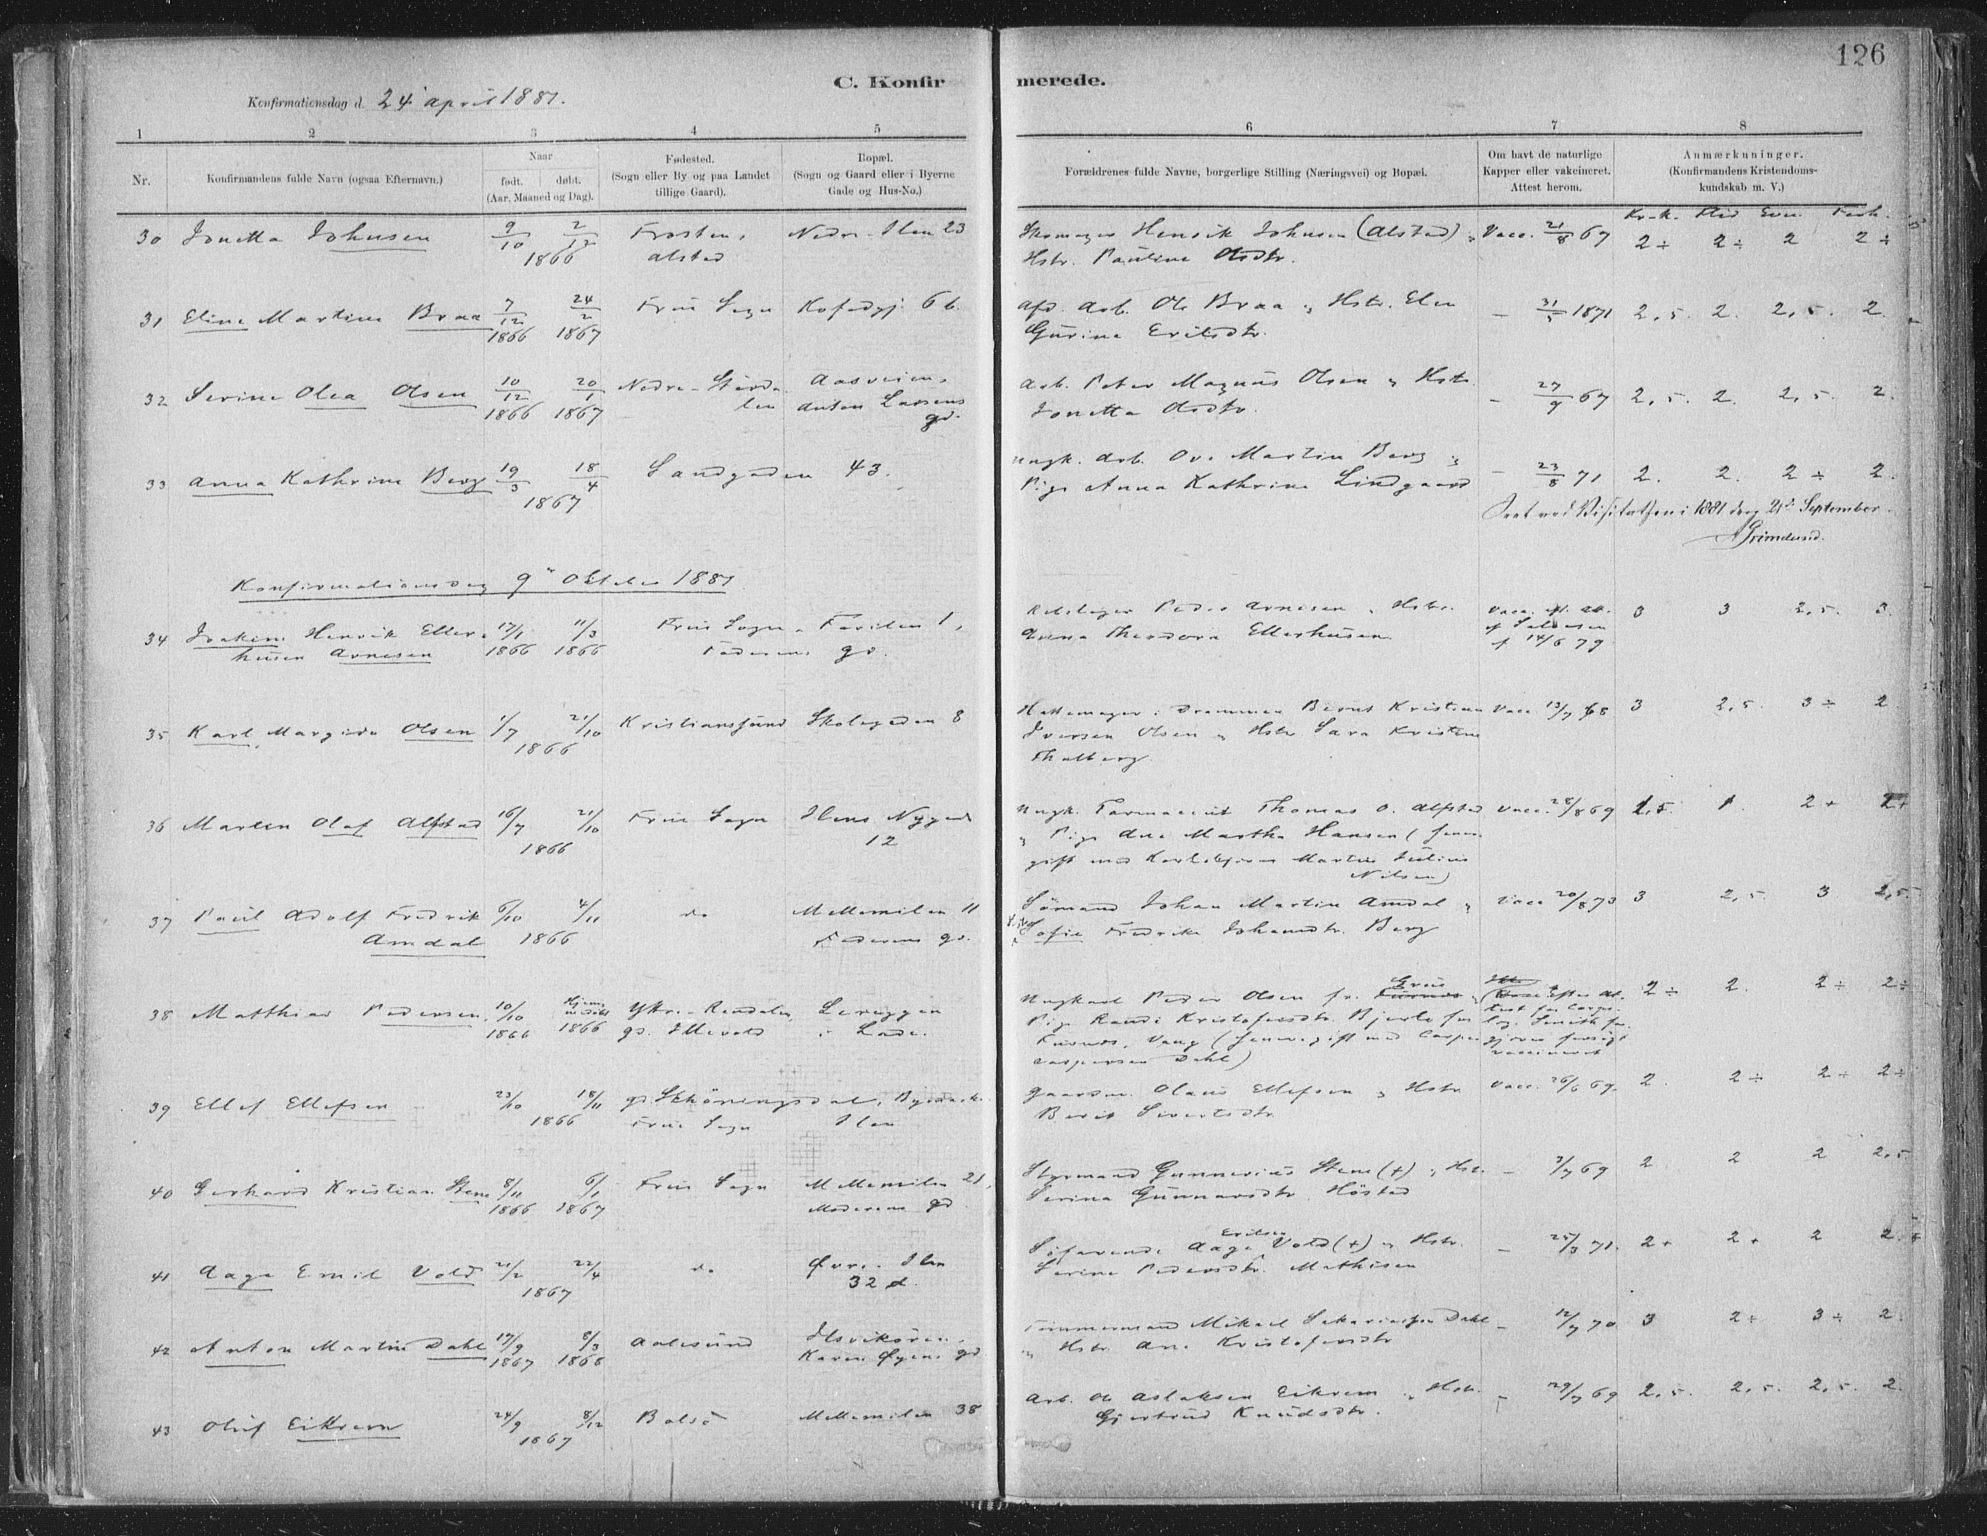 126
C. Konfirmerede.
Konfirmationsdag d. 24 april 1881.
1 2 3 4 5 6 7 8
Nr. Konfirmandens fulde Navn (ogsaa Efternavn.) Naar født. døbt. (Aar, Maaned og Dag). Fødested. (Sogn eller By og paa Landet tillige Gaard). Bopæl. (Sogn og Gaard eller i Byerne Gade og Hus-No.) Forældrenes fulde Navne, borgerlige Stilling (Næringsvei) og Bopæl. Om havt de naturlige Kapper eller vakcineret. Attest herom. Anmærkninger. (Konfirmandens Kristendomskundskab m. V.)
30 Jonetta Johnsen 9/10 2/12 1866 Frosten, Alstad Nedre Ilen 23 Skomager Henrik Johnsen (Alstad) Hstr. Pauline Olsdtr. Vacc. 21/8 67 2 ÷ 2 ÷ 2 2 ÷
31 Eline Martine Braa 7/12 1866 24/2 1867 Frue Sogn 6 b. afd. Arb. Ole Braa, Hstr. Elen Gurine Eriksdtr. – 31/5 1871 2,5. 2. 2,5. 2.
32 Serine Olea Olsen 10/12 1866 20/1 1867 Nedre-Stjørdalen Aasveien, Anton Larsens gd. Arb. Peter Magnus Olsen, Hstr. Jonetta Olsdtr. – 27/9 67 2,5. 2. 2,5. 2.
33 Anna Kathrine Berg 19/3 18/4 1867 Sandgaden 43. Ungk. Arb. Ove Martin Berg, Pige Anna Kathrine Lindgaard – 23/8 71 2. 2. 2 ÷ 2.
Seet ved Visitatsen i 1881 den 21de September.
Grimelund.
Konfirmationsdag 9de Oktober 1881
34 Joakim Henrik Ellerhusen Arnesen 17/1 1866 11/3 1866 Frue Sogn 1, Faderens gd. Peder Arnesen, Hstr. Anna Theodora Ellerhusen. 14/6 79 3 3 2,5. 3
35 Karl Margido Olsen 1/7 21/10 1866 Kristianssund Skolegaden 8 Hattemager i Drammen Bernt Kristian Iversen Olsen, Hstr. Sara Kristine Thalberg Vacc. 13/7 68 3 2,5. 3 ÷ 2
36 Martin Olaf Alstad 16/7 21/10 1866 Frue Sogn Ilens Nygade 12 Ungk. Farmaceut Thomas O. Alstad, Pige Ane Martha Hansen (senere gift med Martin Julius Nilsen) Vacc. 28/8 69 1,5. 1. 2 + 2 +
37 Paul Adolf Fredrik Amdal 6/10 4/11 1866 do Mellemilen 11 Faderens gd. Sømand Johan Martin Amdal, Sofie Fredrike Johansdtr. Berg Vacc 20/8 73 3 2,5 3 2,5
38 Matthias Pedersen 10/10 1866 Hjemmedøbt 1866 Ytre-Rendalen gd. Ellevold i Lade. Ungkarl Peder Olsen fr. Grue, Pige Randi Kristofersdtr. Bjerke fra Furnæs, Vang (senere gift med Casper Caspersen Dahl) 2 ÷ 2. 2 ÷ 2 ÷
39 Ellef Ellefsen 23/10 18/11 1866 gd. Schøningsdal, Frue Sogn Ilen Gaardm. Olaus Ellefsen, Hstr. Berit Sivertsdtr. Vacc. 26/6 69. 2. 2 ÷ 2 ÷ 2 ÷
40 Gerhard Kristian Stene 8/11 1866 6/1 1867 Frue Sogn Mellemilen 21, Moderens gd Styrmand Gunnerius Stene (+), Hstr. Serina Gunnarsdtr. Høstad – 3/7 69 2 2 2 2,5
41 Aage Emil Vold 21/2 22/4 1867 do Øvre-Ilen 32 d. Søfarende Aage Eriksen Vold (+), Hstr. Serine Pedersdtr. Mathisen – 25/3 71. 2 + 2 + 2 2.
42 Anton Martin Dahl 17/9 1867 8/3 1868 Aalesund Ilsvikøren, Karen Øyens gd Tømmermand Mikael Sakariassen Dahl, Hstr. Ane Kristofersdtr – 12/7 70 3 2 ÷ 3 ÷ 2.
43 Oluf Eikrem 24/9 8/12 1867 Bolsø Mellemilen 38 Arb. Ole Aslaksen Eikrem, Hstr. Gjertrud Knudsdtr. – 29/7 69 2,5. 2,5. 2,5. 2.